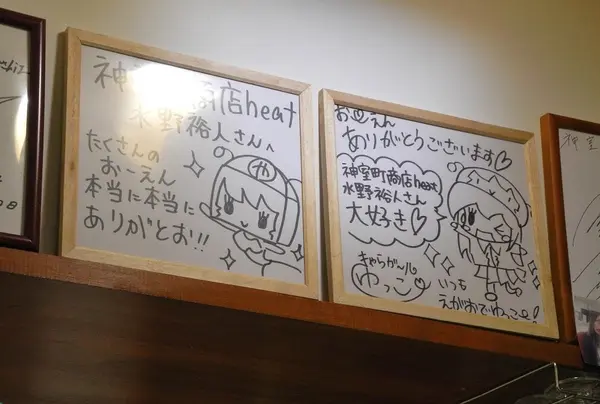 神室町商店heat
水野裕人さんへ
たくさんの
お〜えん
本当に本当に
ありがとお!!
や
お〜えん
ありがとうございます♡
神室町商店heat
水野裕人さん
大好き♡
きゃらが〜ル
わっこ
いつも
えがおでわっこー!
神室